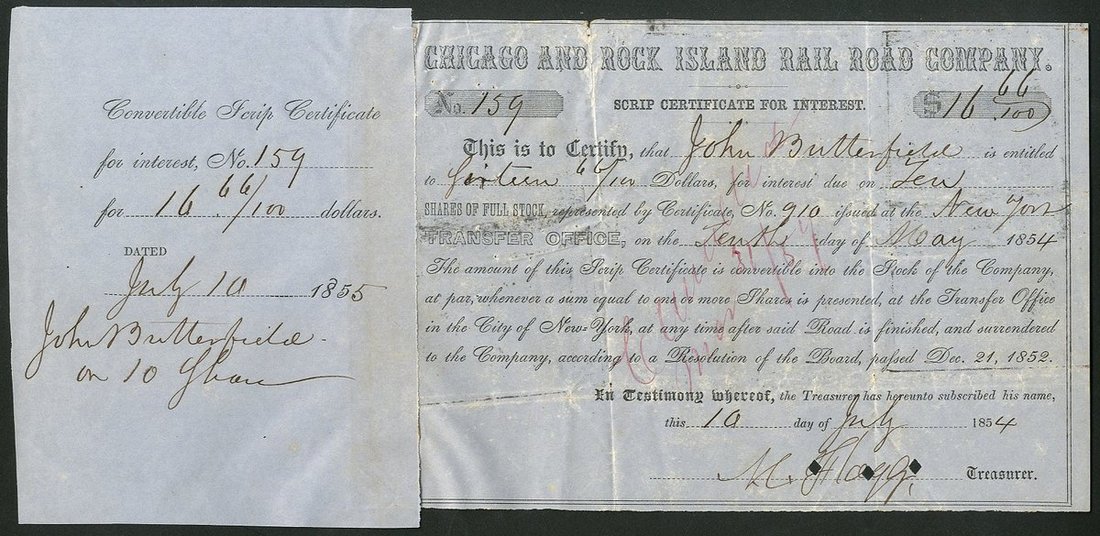 Convertible Scrip Certificate
for interest, No. 159
for 16 66/100 dollars.
DATED
July 10 1855
John Butterfield
on 10 Share
CHICAGO AND ROCK ISLAND RAIL ROAD COMPANY.
No. 159 SCRIP CERTIFICATE FOR INTEREST. $16 66/100
This is to Certify, that John Butterfield is entitled
to Sixteen 66/100 Dollars, for interest due on Ten
SHARES OF FULL STOCK, represented by Certificate, No. 910 issued at the New York
TRANSFER OFFICE, on the Tenth day of May 1854
The amount of this Scrip Certificate is convertible into the Stock of the Company,
at par, whenever a sum equal to one or more Shares is presented, at the Transfer Office
in the City of New=York, at any time after said Road is finished, and surrendered
to the Company, according to a Resolution of the Board, passed Dec. 21, 1852.
In Testimony whereof, the Treasurer has hereunto subscribed his name,
this 10 day of July 1854
Treasurer.